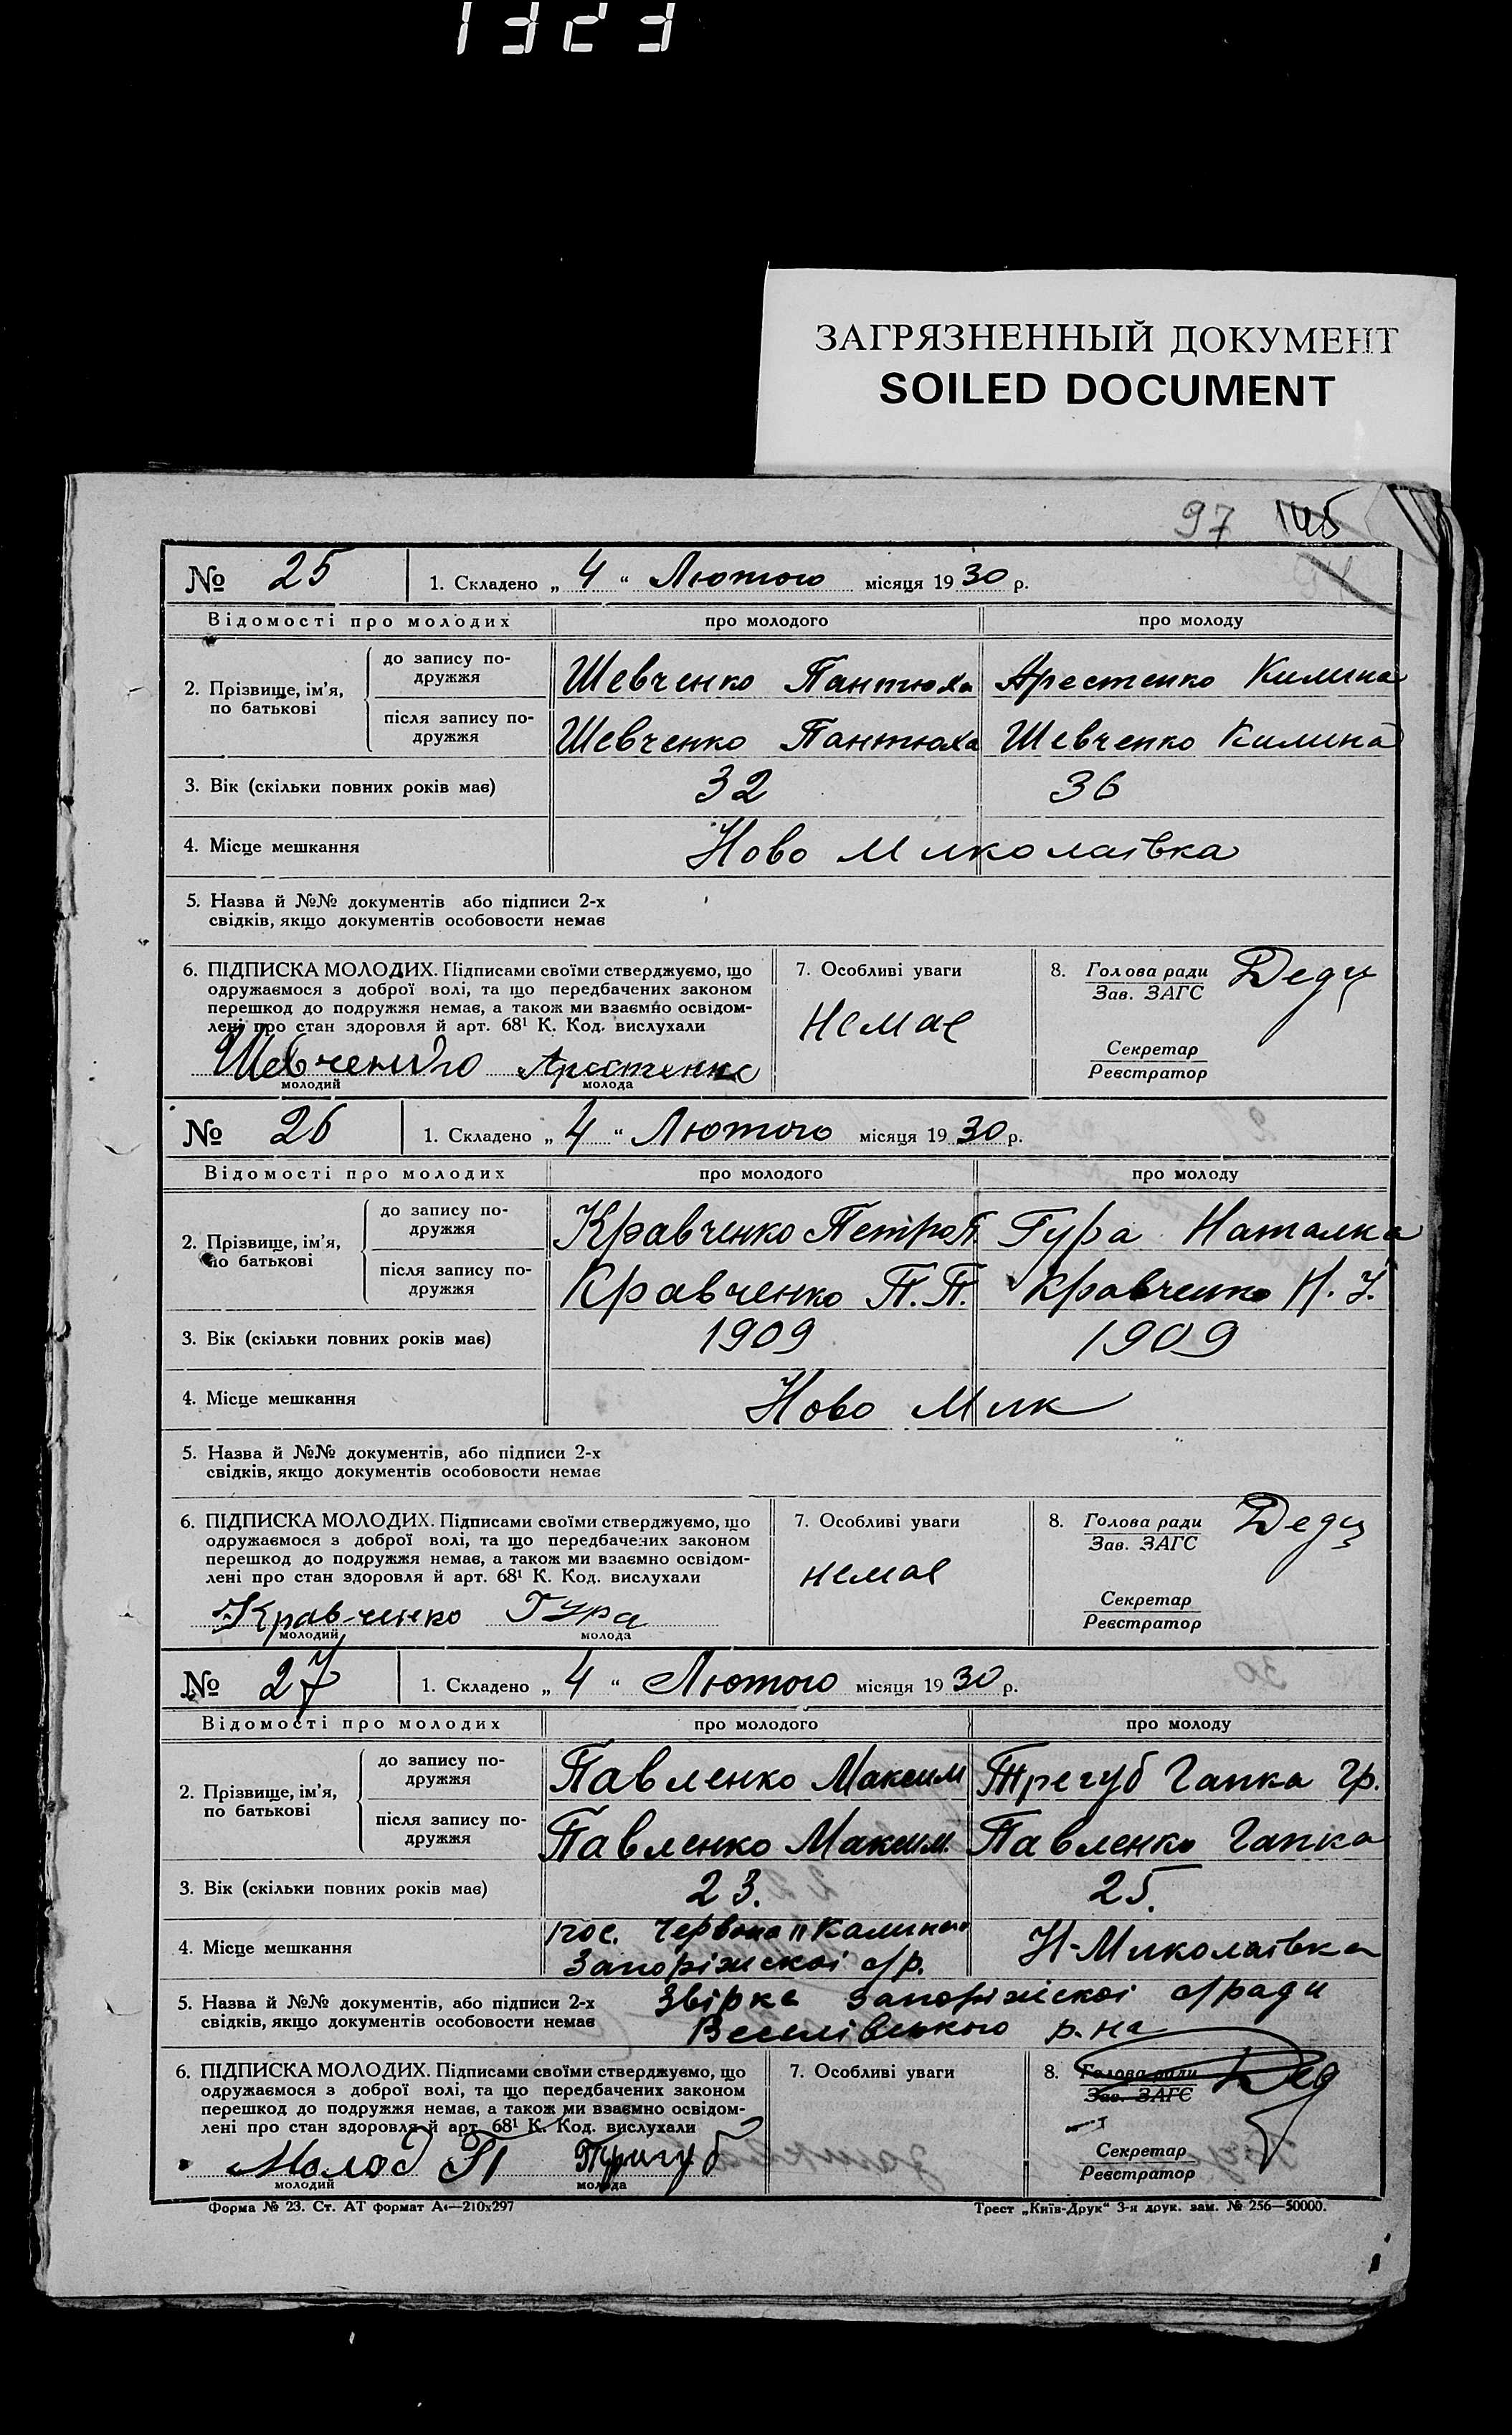 1323
ЗАГРЯЗНЕННЫЙ ДОКУМЕНТ
SOILED DOCUMENT
97 145
94
№ 25 1. Складено „ 4 “ Лютого місяця 19 30 р.
Відомості про молодих про молодого про молоду
2. Прізвище, ім’я, по батькові
до запису подружжя Шевченко Пантюха Арестенко Килина
після запису подружжя Шевченко Пантюха Шевченко Килина
3. Вік (скільки повних років має) 32 36
4. Місце мешкання Ново Миколаівка
5. Назва й №№ документів або підписи 2-х
свідків, якщо документів особовости немає
6. ПІДПИСКА МОЛОДИХ. Підписами своїми стверджуємо, що
одружаємося з доброї волі, та що передбачених законом
перешкод до подружжя немає, а також ми взаємно освідом-
лені про стан здоровля й арт. 68¹ К. Код. вислухали
Шевченко Арестенко
молодий молода
7. Особливі уваги
немає
8. Голова ради
Зав. ЗАГС
Секретар
Реєстратор
№ 26 1. Складено „ 4 “ Лютого місяця 19 30 р.
Відомості про молодих про молодого про молоду
2. Прізвище, ім’я, по батькові
до запису подружжя Кравченко Петро П Гура Наталка
після запису подружжя Кравченко П.П. Кравченко Н. У.
3. Вік (скільки повних років має) 1909 1909
4. Місце мешкання Ново Мик
5. Назва й №№ документів, або підписи 2-х
свідків, якщо документів особовости немає
6. ПІДПИСКА МОЛОДИХ. Підписами своїми стверджуємо, що
одружаємося з доброї волі, та що передбачених законом
перешкод до подружжя немає, а також ми взаємно освідом-
лені про стан здоровля й арт. 68¹ К. Код. вислухали
Кравченко Гура
молодий молода
7. Особливі уваги
немає
8. Голова ради
Зав. ЗАГС
Секретар
Реєстратор
№ 27 1. Складено „ 4 “ Лютого місяця 19 30 р.
Відомості про молодих про молодого про молоду
2. Прізвище, ім’я, по батькові
до запису подружжя Павленко Максим Трегуб Гапка Гр.
після запису подружжя Павленко Максим. Павленко Гапка
3. Вік (скільки повних років має) 23. 25.
4. Місце мешкання
пос. Червона „Калина“
Запоріжскоі с/р. Н-Миколаівка
5. Назва й №№ документів, або підписи 2-х
свідків, якщо документів особовости немає
Звірка Запоріжскої с/ради
Веселівського р.на
6. ПІДПИСКА МОЛОДИХ. Підписами своїми стверджуємо, що
одружаємося з доброї волі, та що передбачених законом
перешкод до подружжя немає, а також ми взаємно освідом-
лені про стан здоровля й арт. 68¹ К. Код. вислухали
Тригуб
молодий молода
7. Особливі уваги
8. Голова ради
Зав. ЗАГС
Секретар
Реєстратор
Форма № 23. Ст. АТ формат А₄—210х297 Трест „Київ-Друк“ 3-я друк. зам. № 256—50000.